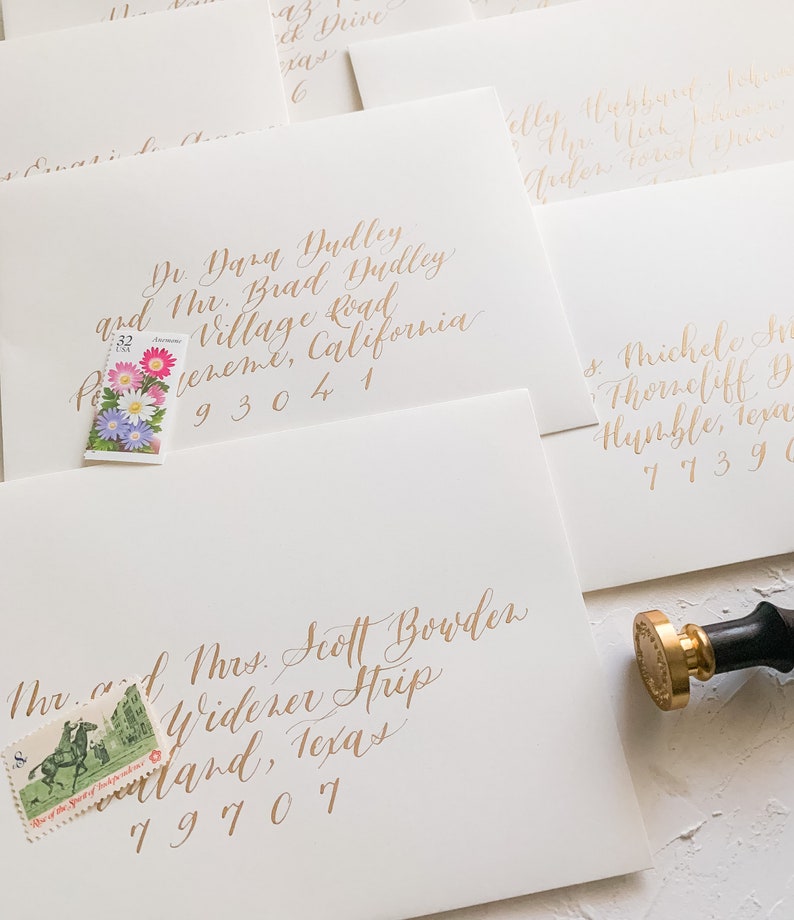 Drive
Texas
6
Kelly Hubbard-Johnson
Mr. Nick Johnson
Arden Forest Drive
Dr. Dana Dudley
and Mr. Brad Dudley
Village Road
California
93041
32
USA
Anemone
Michele
Thorncliff
Humble, Texas
7739
Mr. and Mrs. Scott Bowden
Widener Strip
Texas
79707
8¢
Rise of the Spirit of Independence